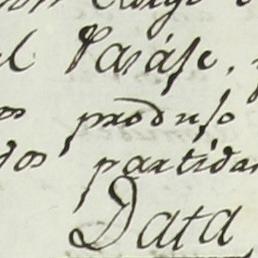 el Pasáje,
os produso
dos partidas
Data